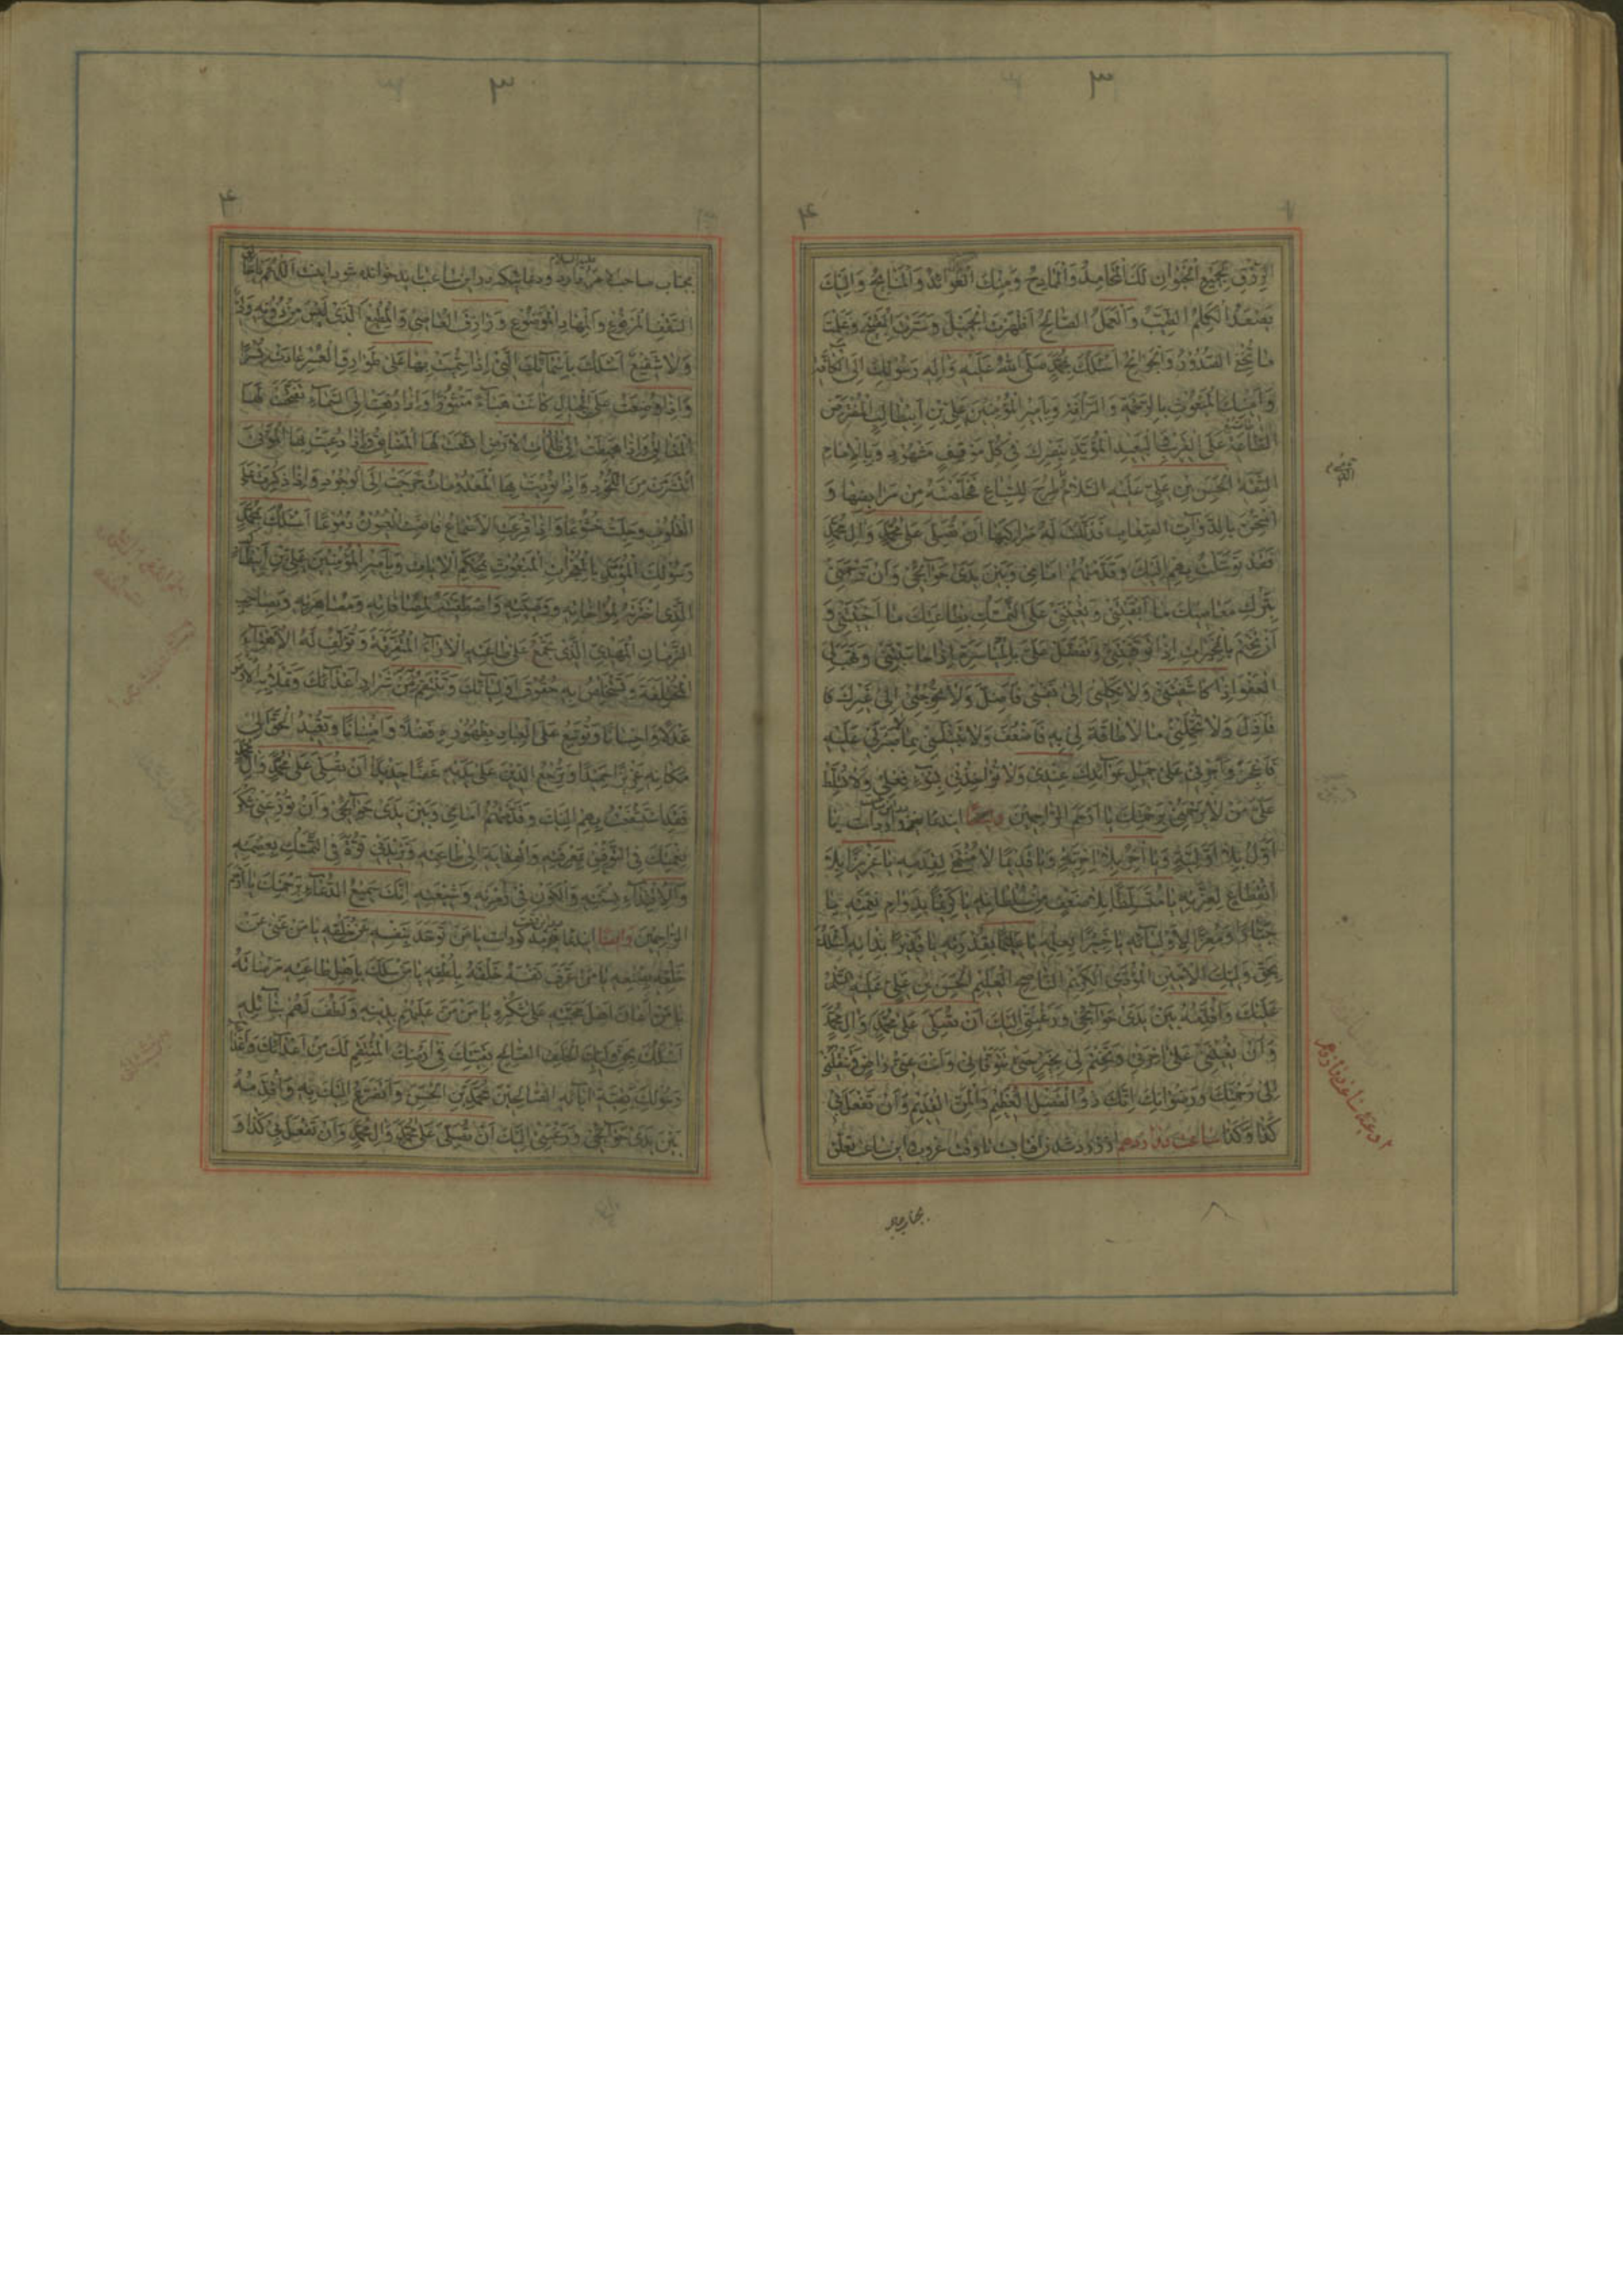 ٣
٤
الرِّزْقِ بِجَمِيعِ الْحَيَوانِ لَكَ الْمَحامِدُ وَالْمَمادِحُ وَمِنْكَ الْعَوائِدُ وَالْمَنايِحُ وَاِلَيْكَ
يَصْعَدُ الْكَلِمُ الطَّيِّبُ وَالْعَمَلُ الصّالِحُ اَظْهَرْتَ الْجَمِيلَ وَسَتَرْتَ الْقَبِيحَ وَعَلِمْتَ
ما تُخْفِي الصُّدُورُ وَالْجَوانِحُ اَسْئَلُكَ بِمُحَمَّدٍ صَلَّى اللهُ عَلَيْهِ وَآلِهِ رَسُولِكَ اِلَى الْكافَّةِ
وَاَمِينِكَ الْمَبْعُوثِ بِالرَّحْمَةِ وَالرَّأْفَةِ وَبِاَمِيرِ الْمُؤْمِنِينَ عَلِيِّ بْنِ اَبِيطالِبٍ الْمُفْتَرَضِ
طاعَتُهُ عَلَى الْقَرِيبِ الْبَعِيدِ الْمُؤَيَّدِ بِنَصْرِكَ فِي كُلِّ مَوْقِفٍ مَشْهُودٍ وَبِالْاِمامِ
الثِّقَةِ الْحَسَنِ بْنِ عَلِيٍّ عَلَيْهِ السَّلامُ طُرِحَ لِلسِّباعِ فَخَلَّصْتَهُ مِنْ مَرابِضِها وَ
امْتُحِنَ بِالدَّوابِّ الصِّعابِ فَذَلَّلْتَ لَهُ مَراكِبَها اَنْ تُصَلِّيَ عَلى مُحَمَّدٍ وَآلِ مُحَمَّدٍ
فَقَدْ تَوَسَّلْتُ بِهِمْ اِلَيْكَ وَقَدَّمْتُهُمْ اَمامِي وَبَيْنَ يَدَيْ حَوائِجِي وَاَنْ تَرْحَمَنِي
بِتَرْكِ مَعاصِيكَ ما اَبْقَيْتَنِي وَتُعِينَنِي عَلَى التَّمَسُّكِ بِطاعَتِكَ ما اَحْيَيْتَنِي وَ
اَنْ تَخْتِمَ بِالْخَيْراتِ اِذا تَوَفَّيْتَنِي وَتَفَضَّلَ عَلَيَّ بِالْمُياسَرَةِ اِذا حاسَبْتَنِي وَتَهَبَ لِيَ
الْعَفْوَ اِذا كاشَفْتَنِي وَلا تَكِلْنِي اِلى نَفْسِي فَاَضِلَّ وَلا تُحْوِجْنِي اِلى غَيْرِكَ
فَاَذِلَّ وَلا تُحَمِّلْنِي ما لا طاقَةَ لِي بِهِ فَاَضْعُفَ وَلا تَبْتَلِيَنِي بِما لا صَبْرَ لِي عَلَيْهِ
فَاَعْجِزَ وَاَجْرِنِي عَلى جَمِيلِ عَوائِدِكَ عِنْدِي وَلا تُؤاخِذْنِي بِسُوءِ فِعْلِي وَلا تُسَلِّطْ
عَلَيَّ مَنْ لا يَرْحَمُنِي بِرَحْمَتِكَ يا اَرْحَمَ الرّاحِمِينَ وايضا
اَوَّلُ بِلا اَوَّلِيَّةٍ وَيا آخِرُ بِلا آخِرِيَّةٍ وَيا قَدِيمًا لا مُنْتَهى لِقِدَمِهِ يا عَزِيزًا بِلا
انْقِطاعٍ لِعِزَّتِهِ يا مُتَسَلِّطًا بِلا ضَعْفٍ مِنْ سُلْطانِهِ يا كَرِيمًا بِدَوامِ نِعْمَتِهِ يا
جَبّارًا وَمُعِزًّا لِاَوْلِيائِهِ يا خَبِيرًا بِعِلْمِهِ يا عَلِيمًا بِقُدْرَتِهِ يا قَدِيرًا بِذاتِهِ اَسْئَلُكَ
بِحَقِّ وَلِيِّكَ الْاَمِينِ الْمُؤَدِّي الْكَرِيمِ النّاصِحِ الْعَلِيمِ الْحَسَنِ بْنِ عَلِيٍّ عَلَيْهِ السَّلامُ
عَلَيْكَ وَاُقَدِّمُهُ بَيْنَ يَدَيْ حَوائِجِي وَرَغْبَتِي اِلَيْكَ اَنْ تُصَلِّيَ عَلى مُحَمَّدٍ وَآلِ مُحَمَّدٍ
وَاَنْ تُعِينَنِي عَلى آخِرَتِي وَتَخْتِمَ لِي بِخَيْرٍ حَتّى تَتَوَفّانِي وَاَنْتَ عَنِّي راضٍ وَتَنْقُلَنِي
اِلى رَحْمَتِكَ وَرِضْوانِكَ اِنَّكَ ذُو الْفَضْلِ الْعَظِيمِ وَالْمَنِّ الْقَدِيمِ وَاَنْ تَفْعَلَ بِي
كَذا وَكَذا ساعت دوازدهم از زرد شدن آفتاب تا وقت غروب و اين ساعت تعلق
٣
٤
بجناب صاحب الامر دارد عليه السلام و دعائيكه در اين ساعت بايد خوانده شود اينست اَللّهُمَّ يا خالِقَ
السَّقْفِ الْمَرْفُوعِ وَالْمِهادِ الْمَوْضُوعِ وَرازِقَ الْعاصِي وَالْمُطِيعِ الَّذِي لَيْسَ مِنْ دُونِهِ وَلِيٌّ
وَلا شَفِيعٌ اَسْئَلُكَ بِاَسْمائِكَ الَّتِي اِذا سُمِّيَتْ بِها عَلى طَوارِقِ الْعُسْرِ عادَتْ يُسْرًا
وَاِذا وُضِعَتْ عَلَى الْجِبالِ كانَتْ هَباءً مَنْثُورًا وَاِذا رُفِعَتْ اِلَى السَّماءِ تَفَتَّحَتْ لَهَا
الْمَغالِقُ وَاِذا هَبَطَتْ اِلى ظُلُماتِ الْاَرْضِ اتَّسَعَتْ لَهَا الْمَضايِقُ وَاِذا دُعِيَتْ بِهَا الْمَوْتى
انْتَشَرَتْ مِنَ اللُّحُودِ وَاِذا نُودِيَتْ بِهَا الْمَعْدُوماتُ خَرَجَتْ اِلَى الْوُجُودِ وَاِذا ذُكِرَتْ عَلَى
الْقُلُوبِ وَجِلَتْ خُشُوعًا وَاِذا قَرَعَتِ الْاَسْماعَ فاضَتِ الْعُيُونُ دُمُوعًا اَسْئَلُكَ بِمُحَمَّدٍ
رَسُولِكَ الْمُؤَيَّدِ بِالْمُعْجِزاتِ الْمَبْعُوثِ بِمُحْكَمِ الْآياتِ وَبِاَمِيرِ الْمُؤْمِنِينَ عَلِيِّ بْنِ اَبِيطالِبٍ
الَّذِي اخْتَرْتَهُ لِمُؤاخاتِهِ وَوَصِيَّتِهِ وَاصْطَفَيْتَهُ لِمُصافاتِهِ وَمُصاهَرَتِهِ وَبِصاحِبِ
الزَّمانِ الْمَهْدِيِّ الَّذِي تَجْمَعُ عَلى طاعَتِهِ الْآراءَ الْمُتَفَرِّقَةَ وَتُؤَلِّفُ لَهُ الْاَهْواءَ
الْمُخْتَلِفَةَ وَتَسْتَخْلِصُ بِهِ حُقُوقَ اَوْلِيائِكَ وَتَنْتَقِمُ بِهِ مِنْ شِرارِ اَعْدائِكَ وَتَمْلَأُ بِهِ الْاَرْضَ
عَدْلًا وَاِحْسانًا وَتُوَسِّعُ عَلَى الْعِبادِ بِظُهُورِهِ فَضْلًا وَامْتِنانًا وَتُعِيدُ الْحَقَّ اِلى
مَكانِهِ عَزِيزًا حَمِيدًا وَتُرْجِعُ الدِّينَ عَلى يَدَيْهِ غَضًّا جَدِيدًا اَنْ تُصَلِّيَ عَلى مُحَمَّدٍ وَآلِ مُحَمَّدٍ
فَقَدِ اسْتَشْفَعْتُ بِهِمْ اِلَيْكَ وَقَدَّمْتُهُمْ اَمامِي وَبَيْنَ يَدَيْ حَوائِجِي وَاَنْ تُوزِعَنِي شُكْرَ
نِعْمَتِكَ فِي التَّوْفِيقِ لِمَعْرِفَتِهِ وَالْهِدايَةِ اِلى طاعَتِهِ وَتَزِيدَنِي قُوَّةً فِي التَّمَسُّكِ بِعِصْمَتِهِ
وَالْاِقْتِداءِ بِسُنَّتِهِ وَالْكَوْنِ فِي زُمْرَتِهِ وَشِيعَتِهِ اِنَّكَ سَمِيعُ الدُّعاءِ بِرَحْمَتِكَ يا اَرْحَمَ
الرّاحِمِينَ وايضا يا مَنْ تَوَحَّدَ بِنَفْسِهِ عَنْ خَلْقِهِ يا مَنْ غَنِيَ عَنْ
خَلْقِهِ بِصُنْعِهِ يا مَنْ عَرَّفَ نَفْسَهُ خَلْقَهُ بِلُطْفِهِ يا مَنْ سَلَكَ بِاَهْلِ طاعَتِهِ مَرْضاتَهُ
يا مَنْ اَعانَ اَهْلَ مَحَبَّتِهِ عَلى شُكْرِهِ يا مَنْ مَنَّ عَلَيْهِمْ بِدِينِهِ وَلَطُفَ لَهُمْ بِنائِلِهِ
اَسْئَلُكَ بِحَقِّ وَلِيِّكَ الْخَلَفِ الصّالِحِ بَقِيَّتِكَ فِي اَرْضِكَ الْمُنْتَقِمِ لَكَ مِنْ اَعْدائِكَ وَاَعْداءِ
رَسُولِكَ بَقِيَّةِ آبائِهِ الصّالِحِينَ مُحَمَّدِ بْنِ الْحَسَنِ وَاَتَضَرَّعُ اِلَيْكَ بِهِ وَاُقَدِّمُهُ
بَيْنَ يَدَيْ حَوائِجِي وَرَغْبَتِي اِلَيْكَ اَنْ تُصَلِّيَ عَلى مُحَمَّدٍ وَآلِ مُحَمَّدٍ وَاَنْ تَفْعَلَ بِي كَذا وَ